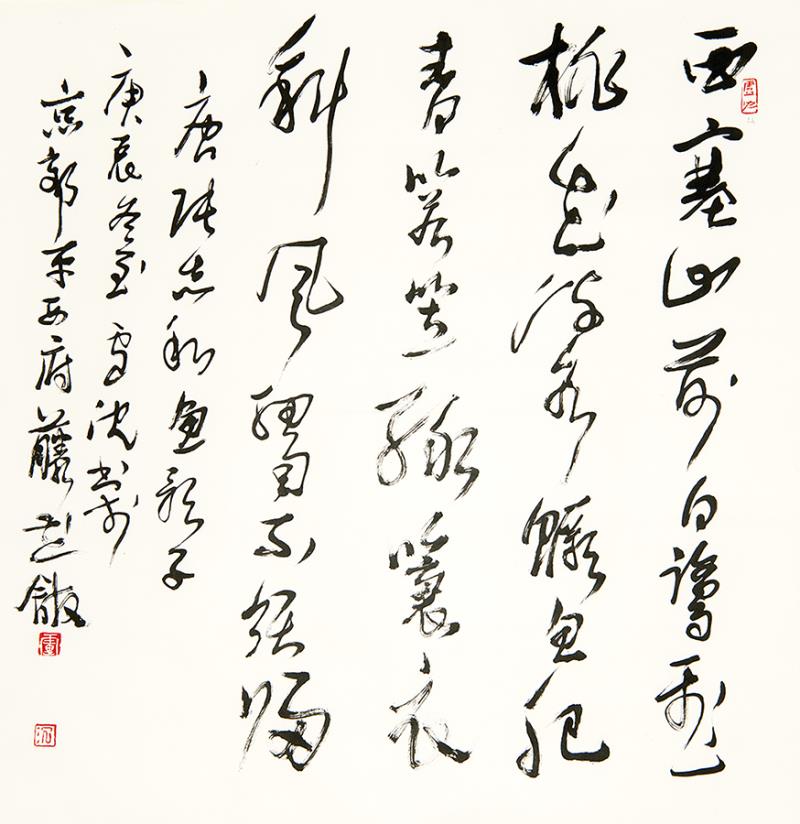 西塞山前白鷺飛
桃花流水鱖魚肥
青箬笠綠簑衣
斜風細雨不須歸
唐張志和魚歌子
庚辰冬至 書於
京郊平西府藤 館